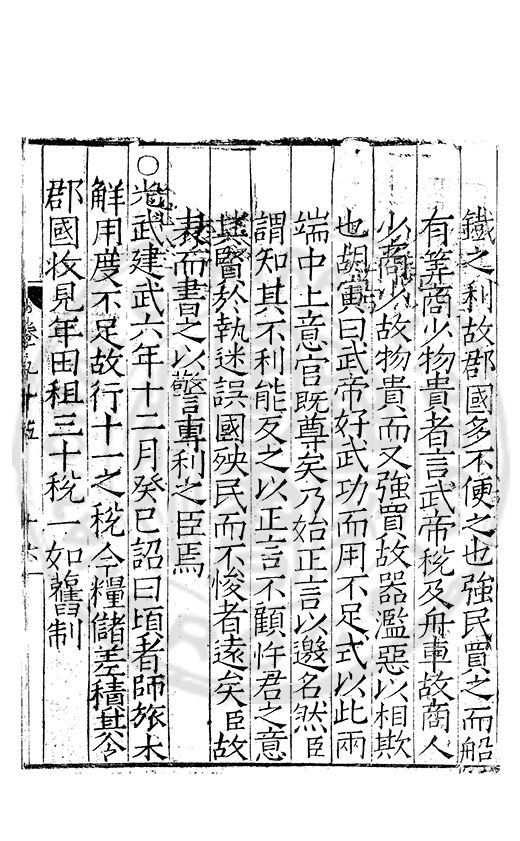 鐵之利故郡國多不便之也強民買之而船
有筭商少物貴者言武帝稅及舟車故商人
少商少故物貴而又強買故器濫惡以相欺
也胡寅曰武帝好武功而用不足式以此兩
端中上意官既尊矣乃始正言以邀名然臣
謂知其不利能反之以正言不顧忤君之意
其賢於執迷誤國殃民而不悛者遠矣臣故
表而書之以警專利之臣焉
○光武建武六年十二月癸巳詔曰頃者師旅未
解用度不足故行十一之稅今糧儲差積其令
郡國收見年田租三十稅一如舊制